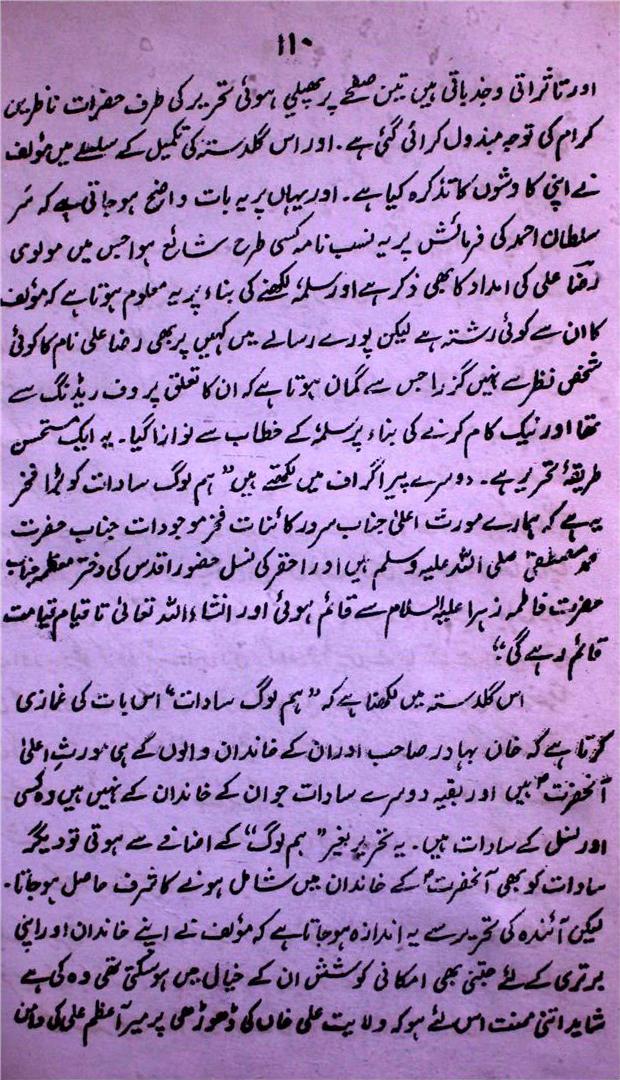 ۱۱۰
اور تاثراتی و جذباتی ہیں تین صفحے پر پھیلی ہوئی تحریر کی طرف حضرات ناظرین
کرام کی توجہ مبذول کرائی گئی ہے۔ اور اس گلدستہ کی تکمیل کے سلسلے میں مؤلف
نے اپنی کاوشوں کا تذکرہ کیا ہے۔ اور یہاں پر یہ بات واضح ہو جاتی ہے کہ سر
سلطان احمد کی فرمائش پر یہ نسب نامہ کسی طرح شائع ہوا جس میں مولوی
رضا علی کی امداد کا بھی ذکر ہے اور سلمہٗ لکھنے کی بناء پر یہ معلوم ہوتا ہے کہ مؤلف
کا ان سے کوئی رشتہ ہے لیکن پورے رسالے میں کہیں پر بھی رضا علی نام کا کوئی
شخص نظر سے نہیں گزرا جس سے گمان ہوتا ہے کہ ان کا تعلق پروف ریڈنگ سے
تھا اور نیک کام کرنے کی بناء پر سلمہٗ کے خطاب سے نوازا گیا۔ یہ ایک مستحسن
طریقۂ تحریر ہے۔ دوسرے پیراگراف میں لکھتے ہیں "ہم لوگ سادات کو بڑا فخر
یہ ہے کہ ہمارے مورث اعلیٰ جناب سرور کائنات فخر موجودات جناب حضرت
محمد مصطفیٰ صلی اللہ علیہ وسلم ہیں اور احقر کی نسل حضور اقدس کی دختر معظمہ جناب
حضرت فاطمہ زہرا علیہا السلام سے قائم ہوئی اور انشاء اللہ تعالیٰ تا قیام قیامت
قائم رہے گی"۔
اس گلدستہ میں لکھنا ہے کہ "ہم لوگ سادات" اس بات کی غمازی
کرتا ہے کہ خان بہادر صاحب اور ان کے خاندان والوں کے ہی مورثِ اعلیٰ
آنحضرتؐ ہیں اور بقیہ دوسرے سادات جو ان کے خاندان کے نہیں ہیں وہ کسی
اور نسل کے سادات ہیں۔ یہ تحریر بغیر "ہم لوگ" کے اضافے سے ہوتی تو دیگر
سادات کو بھی آنحضرتؐ کے خاندان میں شامل ہونے کا شرف حاصل ہو جاتا۔
لیکن آئندہ کی تحریر سے یہ اندازہ ہو جاتا ہے کہ مؤلف نے اپنے خاندان اور اپنی
برتری کے لئے جتنی بھی امکانی کوشش ان کے خیال میں ہو سکتی تھی وہ کی ہے
شاید اتنی محنت اس لئے ہو کہ ولایت علی خاں کی ڈھوڑھی پر میر اعظم علی کی